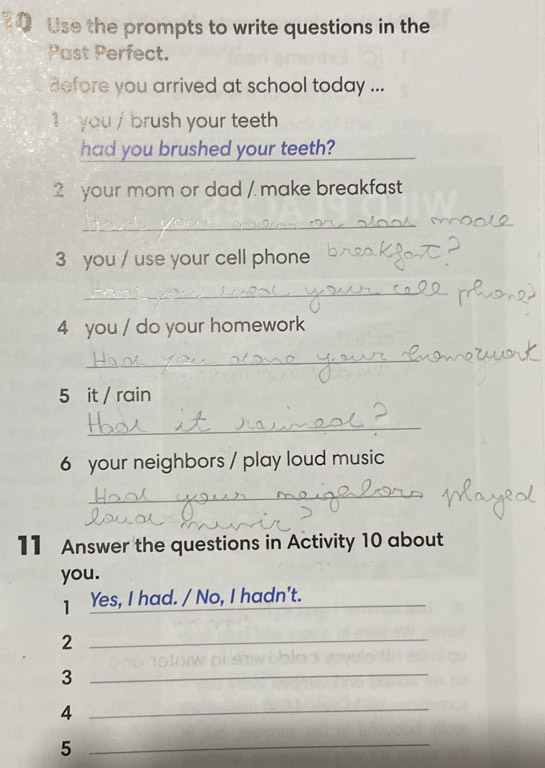 10 Use the prompts to write questions in the
Past Perfect.
Before you arrived at school today ...
1 you / brush your teeth
had you brushed your teeth?
2 your mom or dad / make breakfast
Had your mom or dad made
3 you / use your cell phone breakfast?
Had you used your cell phone?
4 you / do your homework
Had you done your homework
5 it / rain
Had it rained?
6 your neighbors / play loud music
Had your neigelbors played
loud music?
11 Answer the questions in Activity 10 about
you.
1 Yes, I had. / No, I hadn't.
2
3
4
5